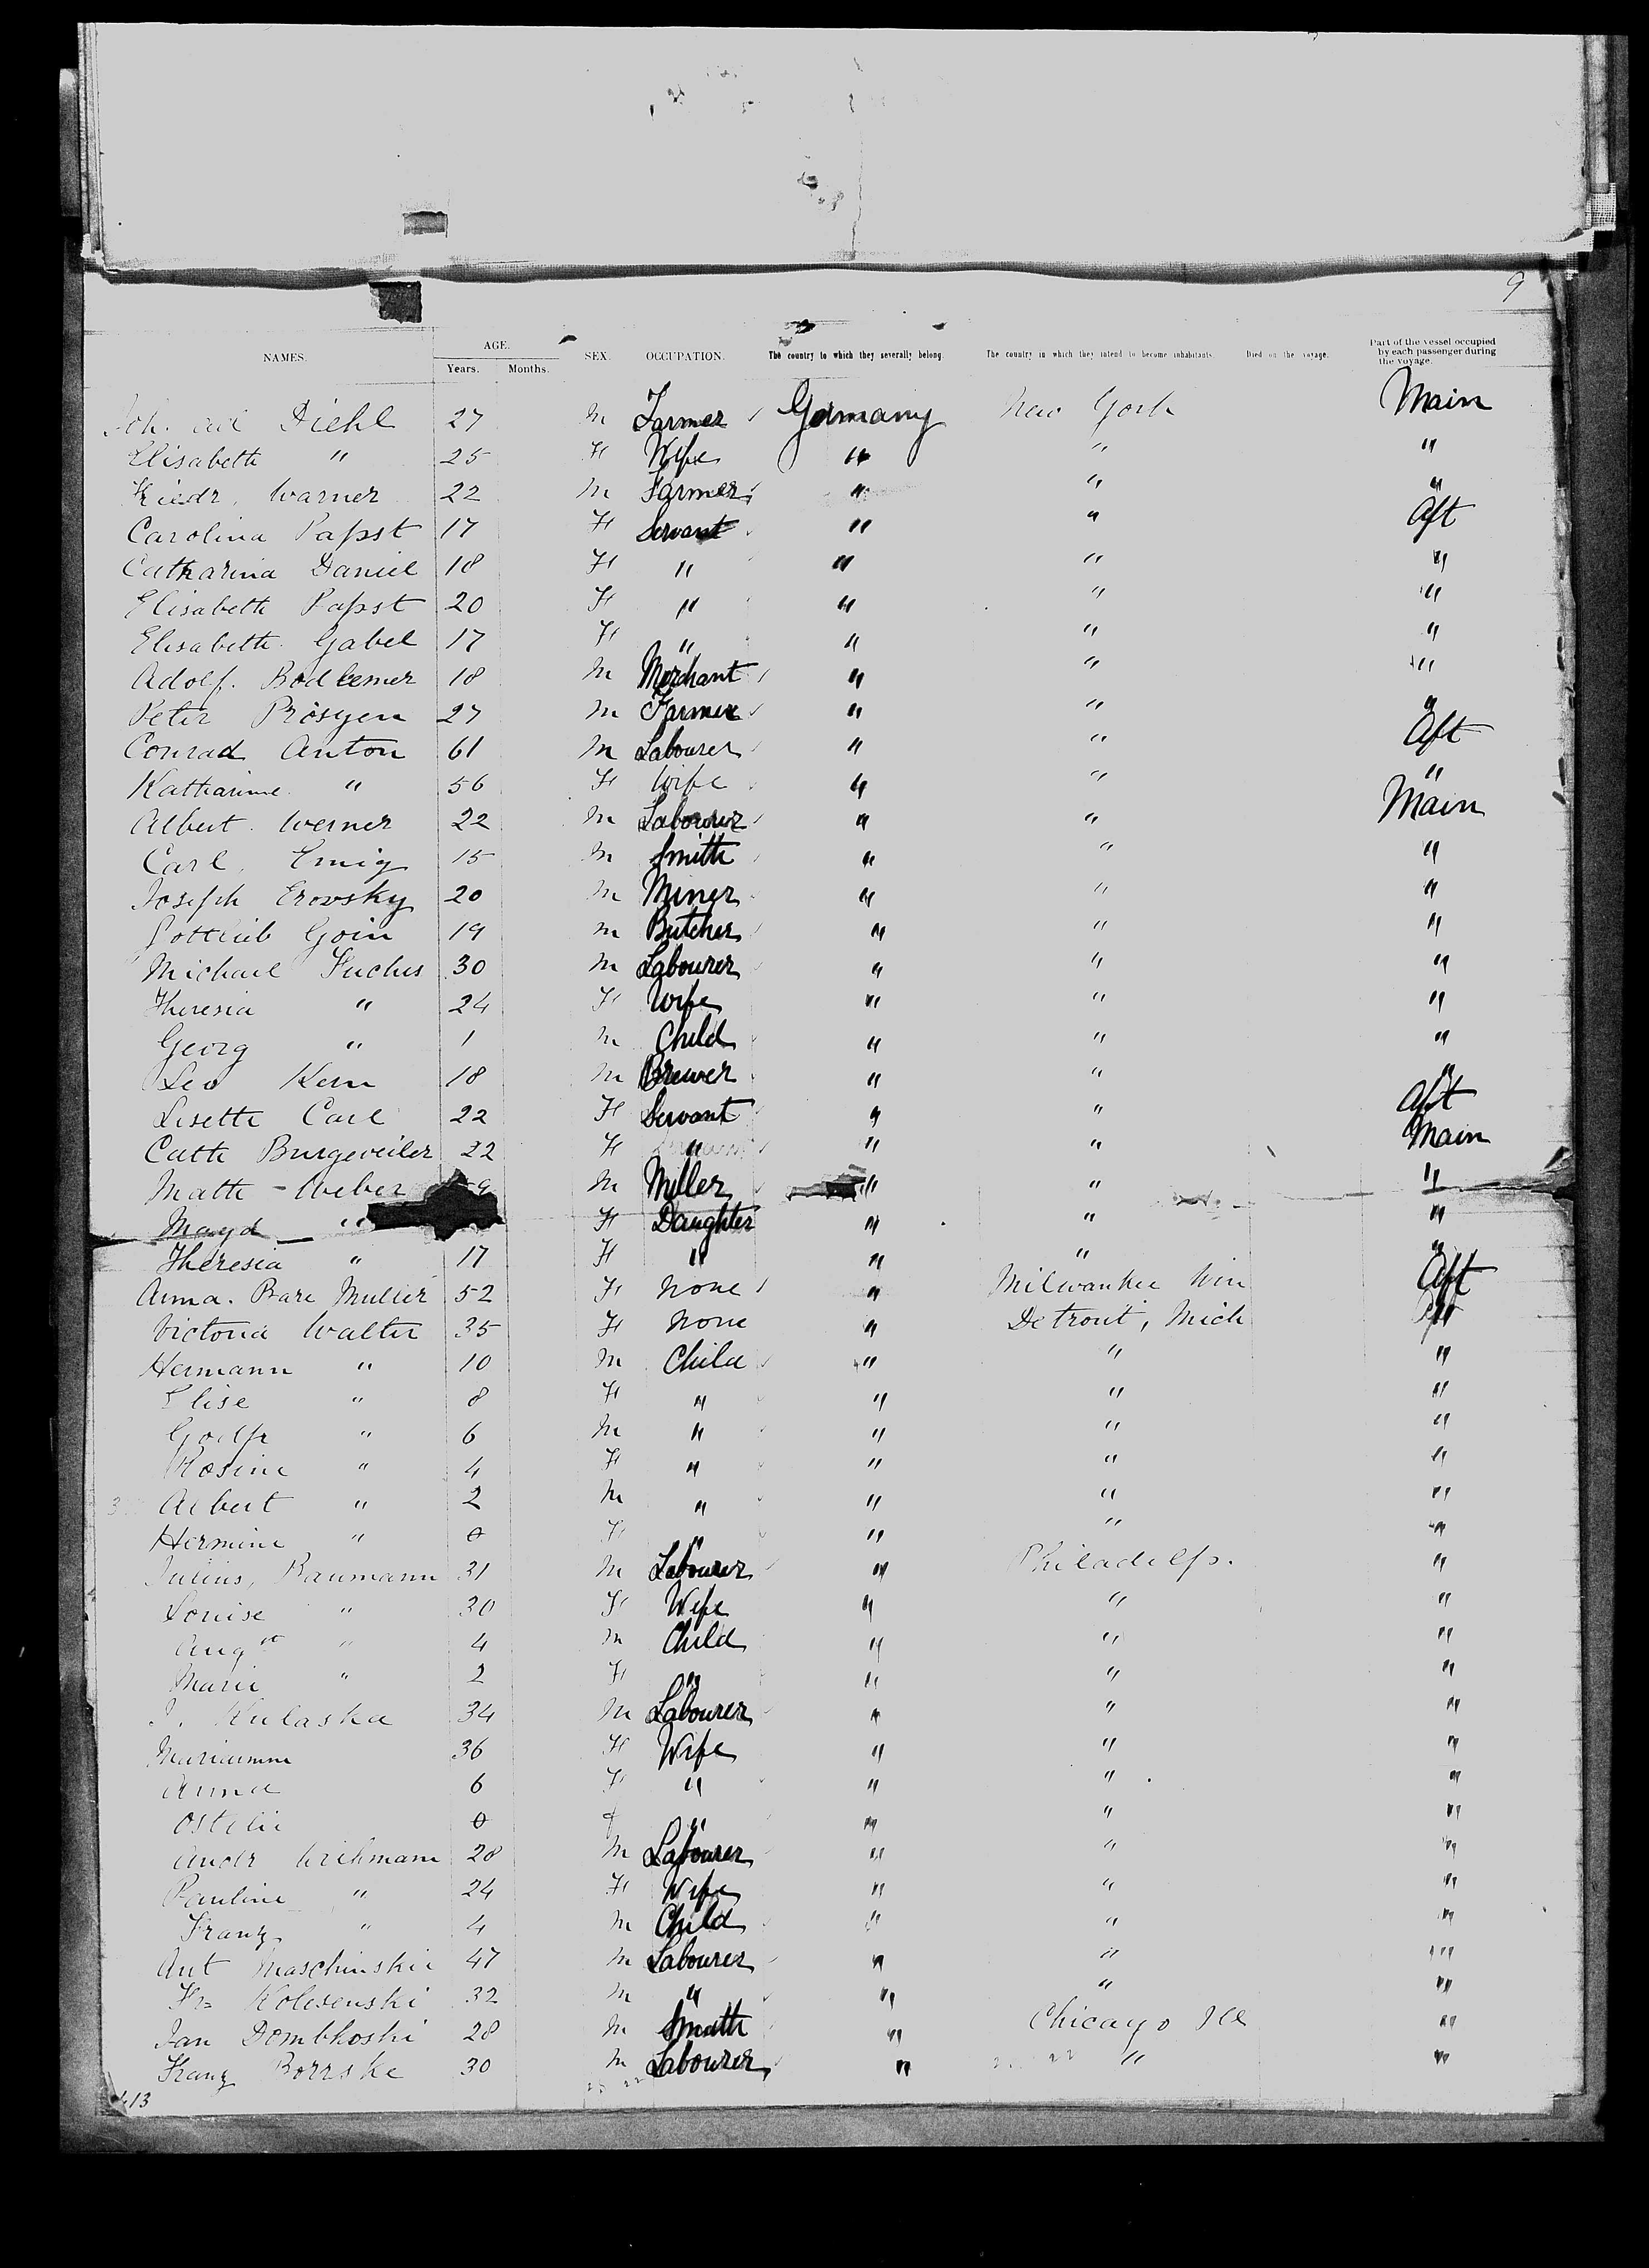 9
NAMES. AGE. SEX. OCCUPATION. The country to which they severally belong. The country in which they intend to become inhabitants. Died on the voyage. Part of the vessel occupied by each passenger during the voyage.
Years. Months.
Joh. Diehl 27 M Farmer Germany New York Main
Elisabeth " 25 F Wife " " "
Friedr. Warner 22 M Farmer " " "
Carolina Papst 17 F Servant " " Aft
Catharina Daniel 18 F " " " "
Elisabeth Papst 20 F " " " "
Elisabeth Gabel 17 F " " " "
Adolf. 18 M Merchant " " "
Peter 27 M Farmer " " "
Conrad Anton 61 M Labourer " " Aft
Katharine " 56 F Wife " " "
Albert Werner 22 M Labourer " " Main
Carl Emig 15 M Smith " " "
Joseph Erovsky 20 M Miner " " "
Gottlieb Goin 19 M Butcher " " "
Michael Fuchs 30 M Labourer " " "
Theresia " 24 F Wife " " "
Georg " 1 M Child " " "
Leo Kern 18 M Brewer " " "
Lisette Carl 22 F Servant " " Aft
Cath Burgeweiler 22 F " " " Main
Math - Weber M Miller " " "
Magd " F Daughter " " "
Theresia " 17 F " " " "
Anna. Bare Muller 52 F None " Milwaukee Win Aft
Victoria Walter 35 F None " Detroit, Mich
Hermann " 10 M Child " " "
Elise " 8 F " " " "
Godfr " 6 M " " " "
Rosine " 4 F " " " "
Albert " 2 M " " " "
Hermine " 0 F " " " "
Julius, Baumann 31 M Labourer " Philadelp. "
Louise " 30 F Wife " " "
Augst " 4 M Child " " "
Marie " 2 F " " " "
Kulaska 34 M Labourer " " "
Marianne 36 F Wife " " "
Anna 6 F " " " "
0 f " " " "
Andr Wichmann 28 M Labourer " " "
Pauline " 24 F Wife " " "
Franz " 4 M Child " " "
Ant Maschinskie 47 M Labourer " " "
Fr= Kolesenski 32 M " " " "
Jan Dombkoski 28 M Smith " Chicago Ill "
Franz Borrske 30 M Labourer " " "
413